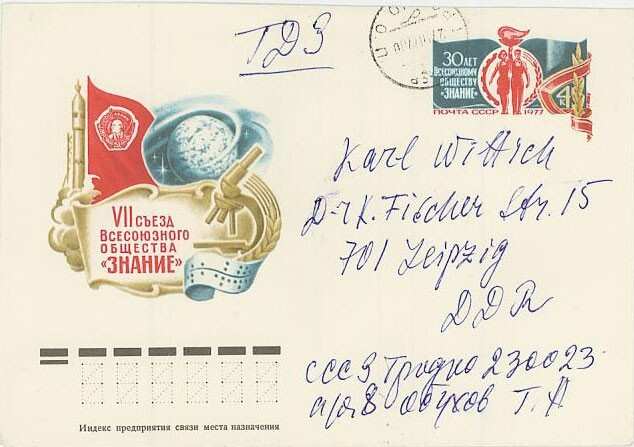 ГДЗ
30 ЛЕТ
ВСЕСОЮЗНОМУ
ОБЩЕСТВУ
«ЗНАНИЕ»
4К
ПОЧТА СССР 1977
VII СЪЕЗД
ВСЕСОЮЗНОГО
ОБЩЕСТВА
«ЗНАНИЕ»
Karl Wittich
D-r K. Fischer Str. 15
701 Leipzig
DDR
СССР Гродно 230023
п/я 8 Обухов Г. А
Индекс предприятия связи места назначения